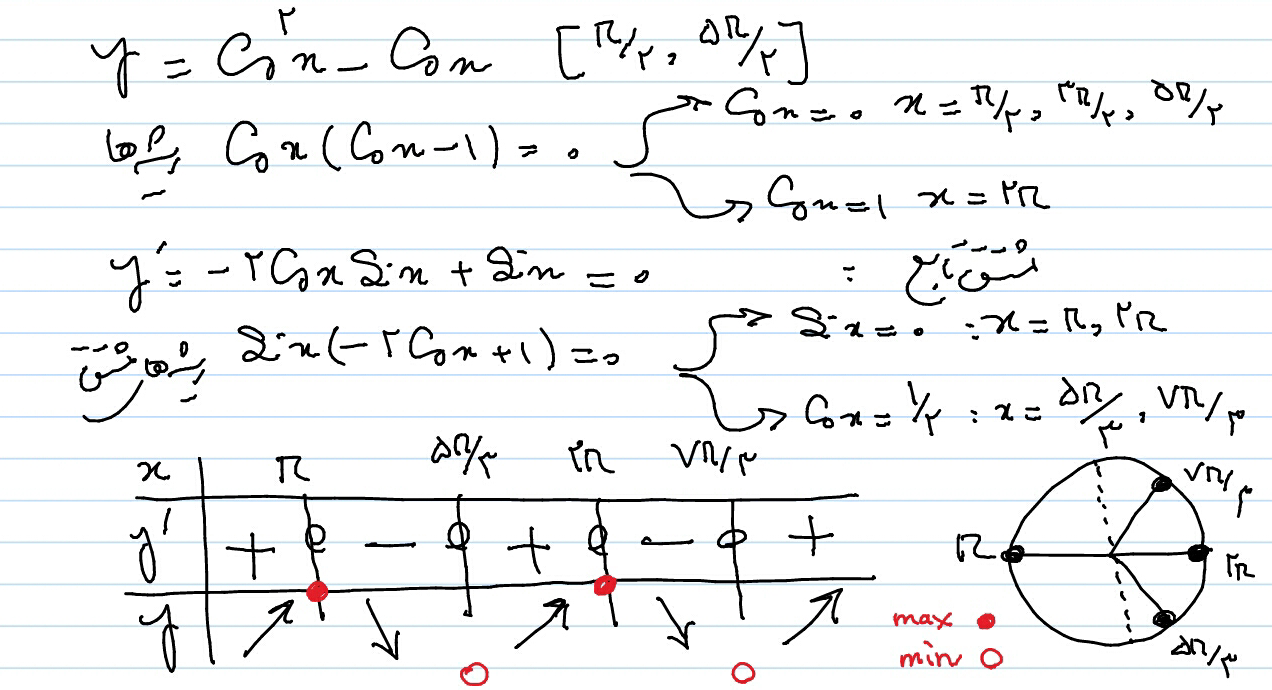 y = Cos²x - Cosx [π/۲, ۵π/۲]
ریشه‌ها Cosx(Cosx-۱) = ۰ → Cosx = ۰ x = π/۲, ۳π/۲, ۵π/۲
→ Cosx = ۱ x = ۲π
مشتق تابع : y' = -۲CosxSinx + Sinx = ۰
ریشه‌ها مشتق Sinx(-۲Cosx+۱) = ۰ → Sinx = ۰ : x = π, ۲π
→ Cosx = ۱/۲ : x = ۵π/۳, ۷π/۳
x π ۵π/۳ ۲π ۷π/۳
y' + ۰ - ۰ + ۰ - ۰ +
y ↗ ↘ ↗ ↘ ↗
max
min
۷π/۳
π
۲π
۵π/۳